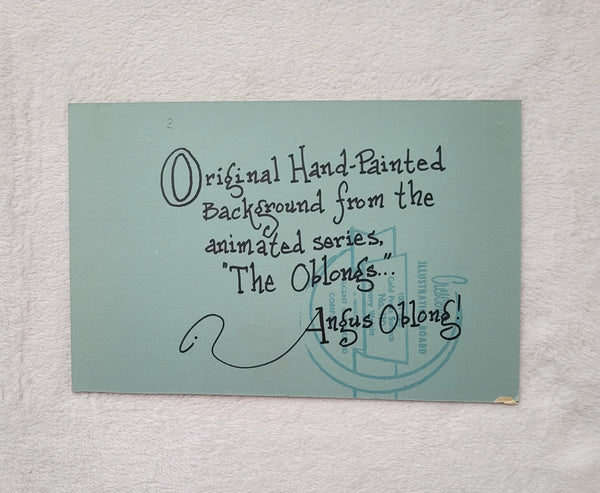 2
Original Hand-Painted
Background from the
animated series,
"The Oblongs..."
Angus Oblong!
ILLUSTRATION BOARD
Cold Press